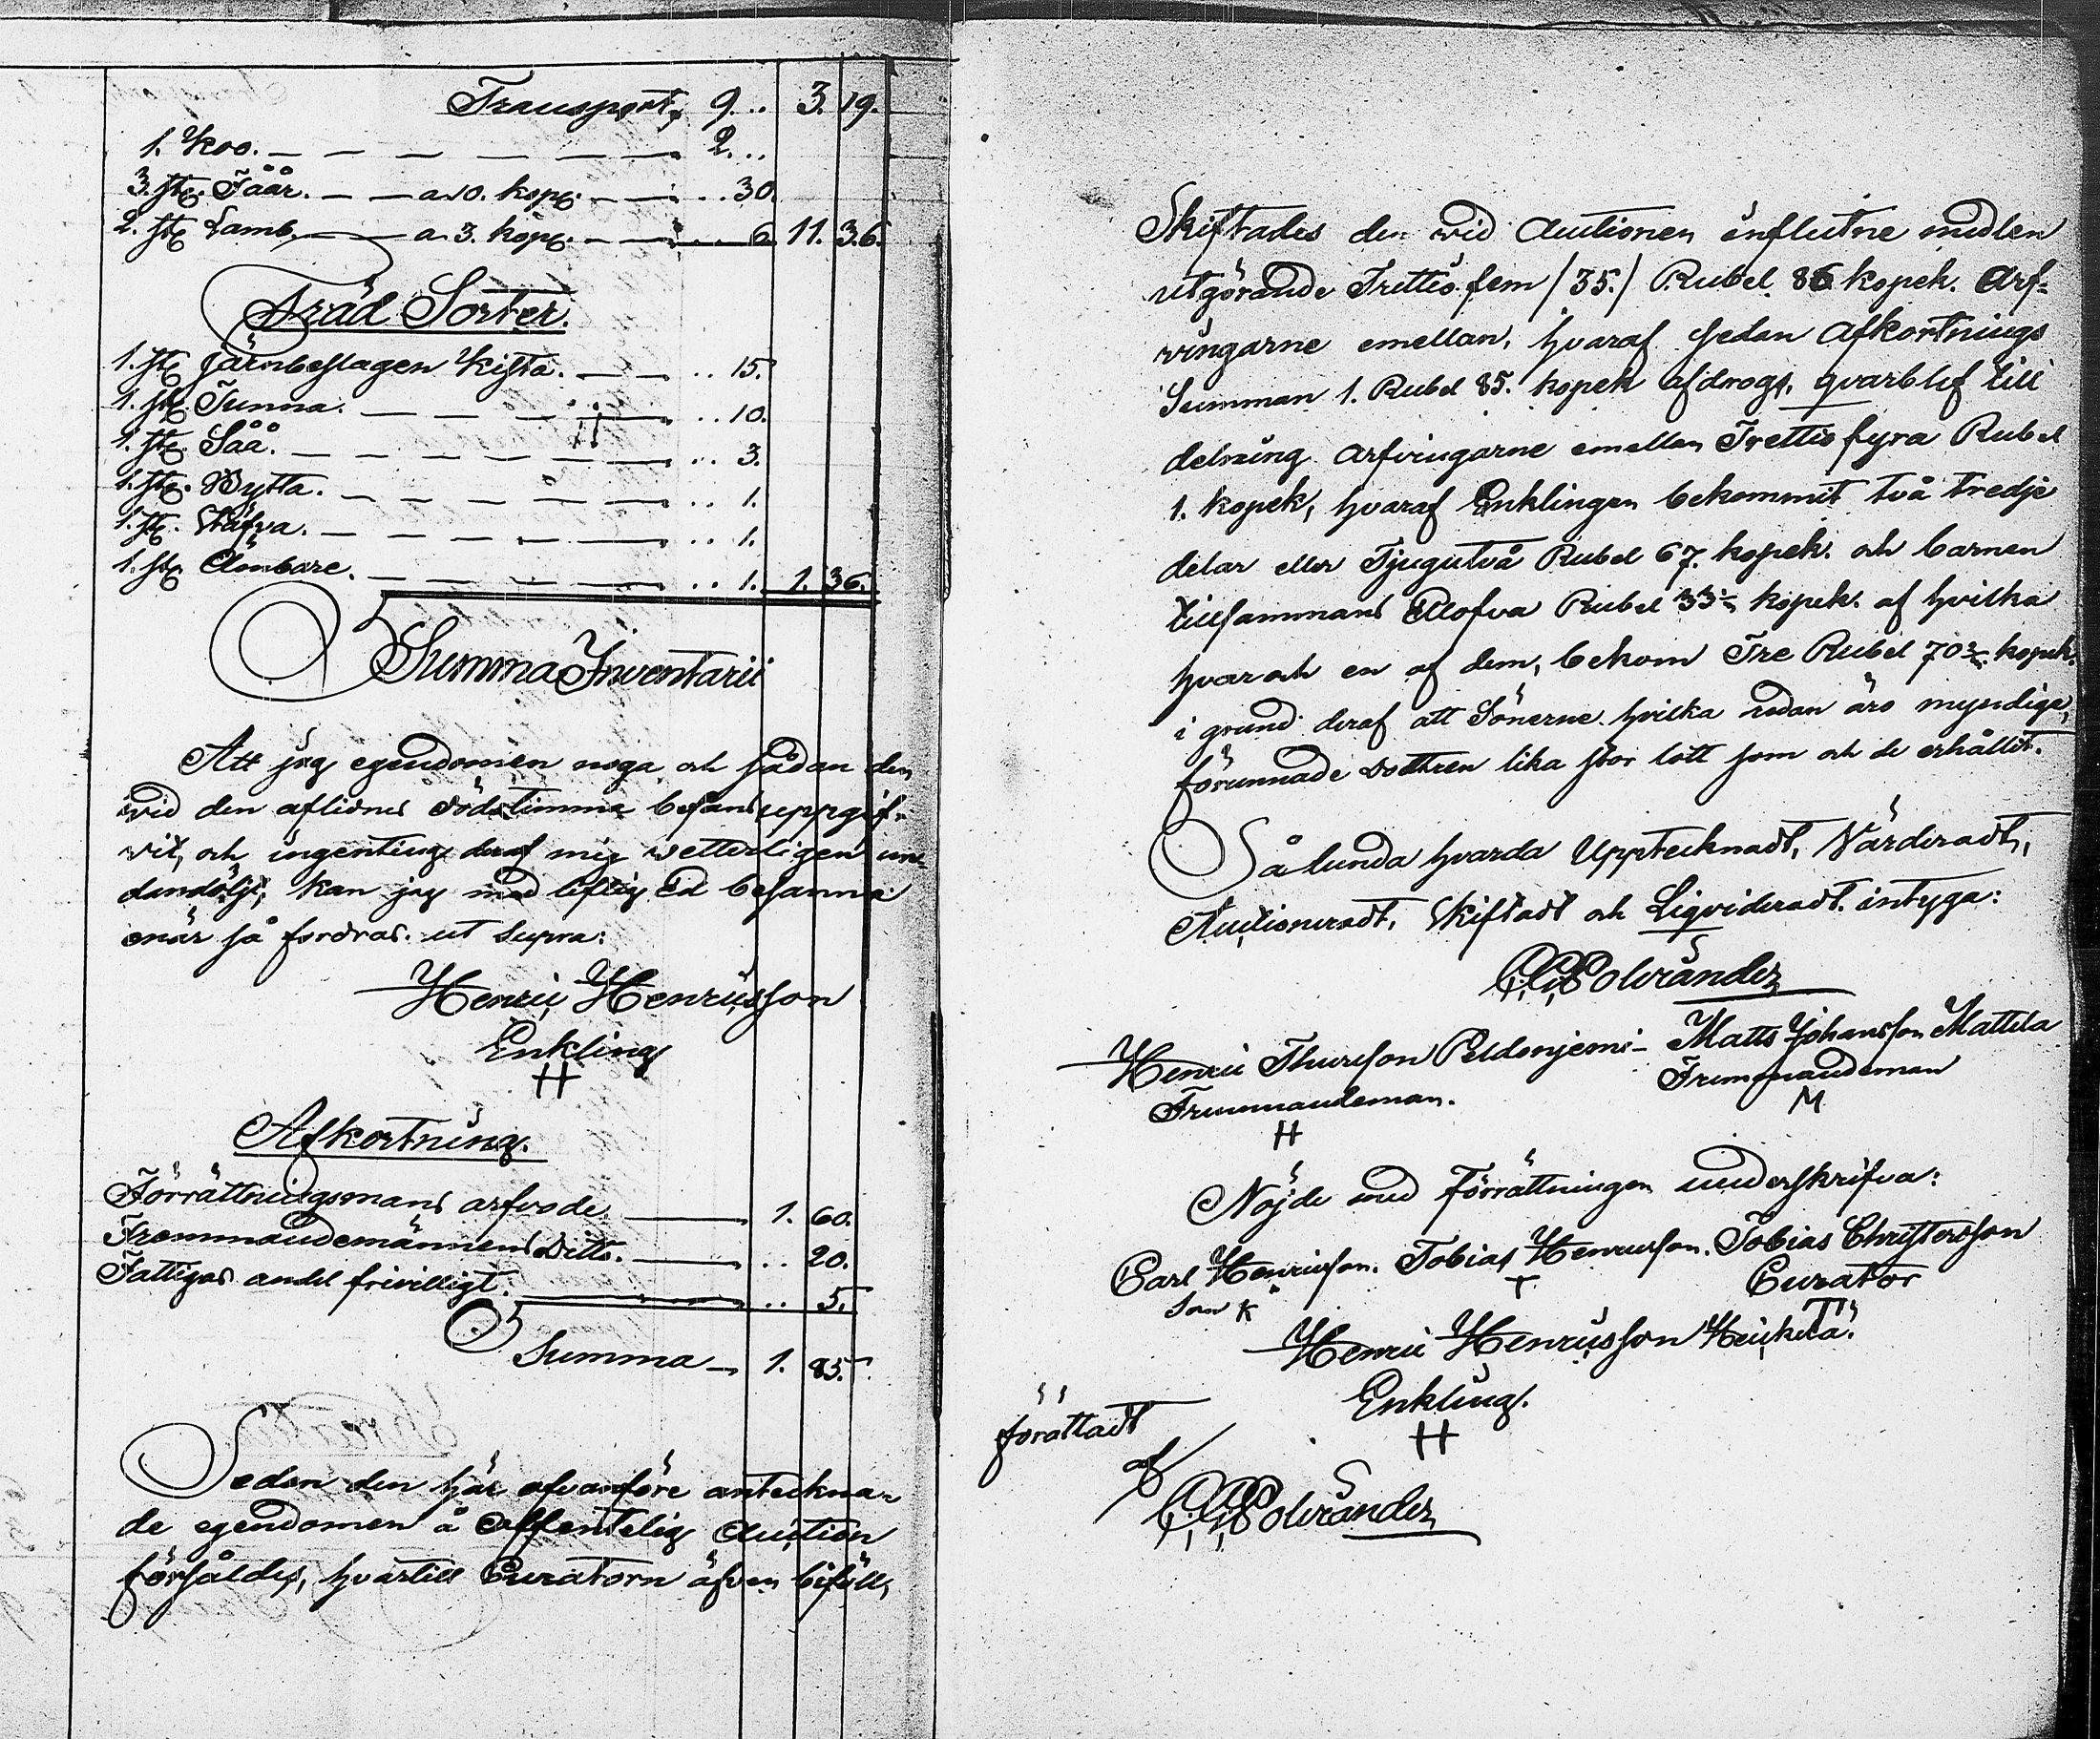 Transport, 9. .. 3. 19.
1. Koo. — — — — — — — 2. ..
3. st. Fåår. — — a 10. kope. — — .. 30.
2. st. Lamb. — — a 3. kope. — — .. 6. 11. 36.
Träd Sorter.
1. st. järnbeslagen Kista. — — .. 15.
1. st. Tunna. — — — — — .. 10.
1. st. Såå. — — — — — — .. 3.
1. st. Bytta. — — — — — .. 1.
1. st. Skäfva. — — — — — .. 1.
1. st. Ämbare. — — — — — .. 1. 1. 36.
Summa Inventarii
Att jag egendomen noga och sådan den
wid den aflidnes Dödstimma befans uppgif-
vit, och ingenting deraf mig vetterligen un-
dandöljt, kan jag med liflig Ed besanna
när så fordras. ut supra:
Henric Henricsson
Enkling
H
Afkortning.
Förrättningsmans arfvode. — 1. 60.
Fremmandemännens Ditto. — .. 20.
Fattigas andel frivilligt. — .. 5.
Summa — 1. 85.
Sedan den här ofvanföre anteckna-
de egendomen å offentelig Auction
försåldes, hvartill Curatorn äfven biföll,
Skiftades den wid Auctionen influtne medlen
utgörande Trettio fem /35./ Rubel 86 kopek. Arf-
vingarne emellan, hvaraf sedan Afkortnings
Summan 1. Rubel 85. kopek afdrogs, qvarblef till
delning arfvingarne emellan Trettio fyra Rubel
1. kopek, hvaraf Enklingen bekommit två tredje
delar eller Tjugutvå Rubel 67. kopek. och barnen
tillsammans Ellofva Rubel 33 kopek. af hvilka
hvar och en af dem, bekom Tre Rubel 70 kopek.
i grund deraf att Sönerne hvilka redan äro myndige,
förunnade dottren lika stor lott som och de erhållit.
Således hvarda Upptecknadt, Värderadt,
Auctioneradt, Skiftadt och Liqvideradt. intyga:
C. G. Polviander
Henric Thureson Peldonjemi – Matts Johansson Mattila
Fremmandeman. Fremmandeman
H M
Nöjde med förrättningen underskrifva:
Carl Henricsson. Tobias Henricsson. Tobias Christersson
son K T Curator
T
Henric Henricsson Heickilä.
Enkling.
H
förättadt
af
C. G. Polviander